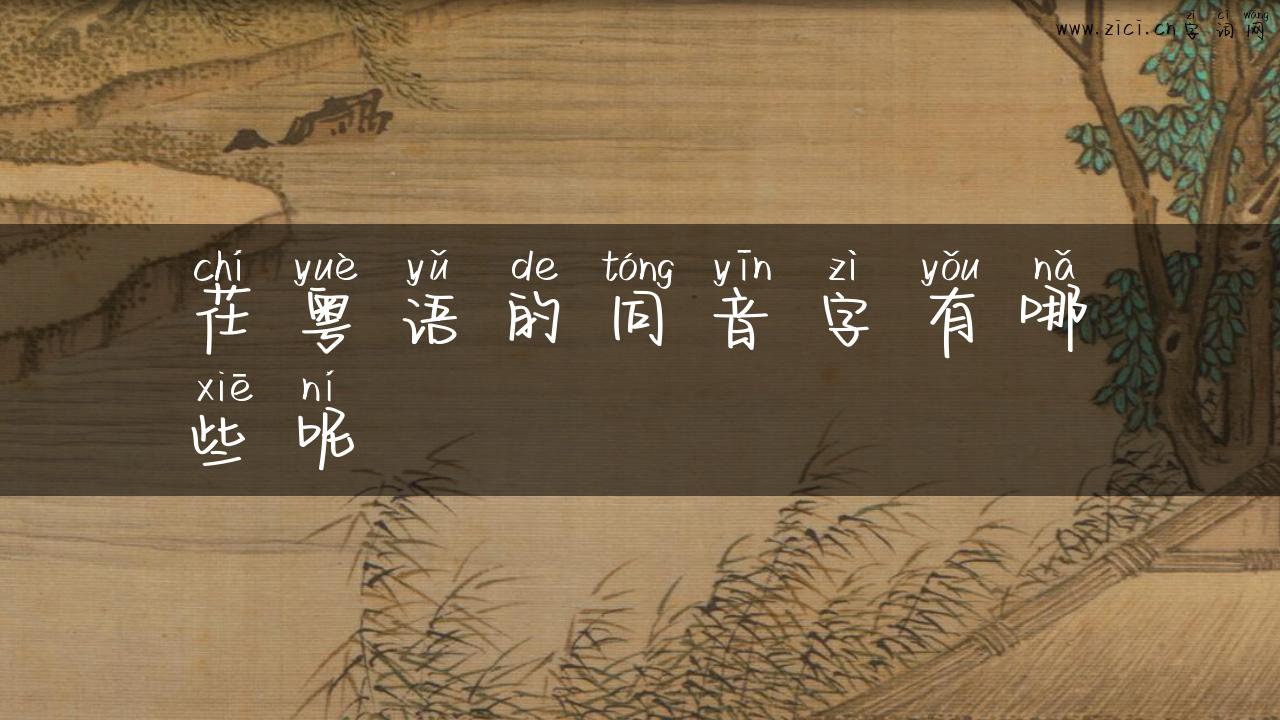 zì cí wǎng
www.zici.cn字词网
chí yuè yǔ de tóng yīn zì yǒu nǎ
茌粤语的同音字有哪
xiē ní
些呢